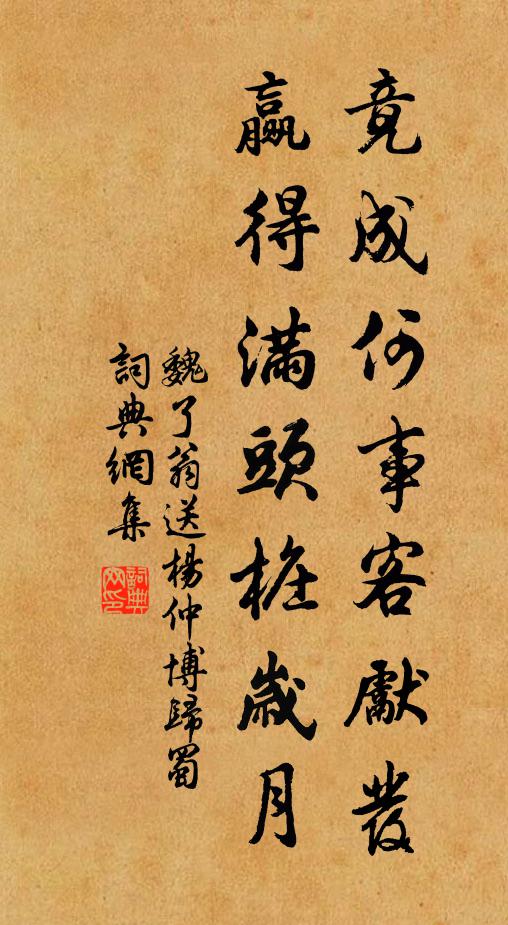 竟成何事客獻發
贏得滿頭桩歲月
魏了翁送楊仲博歸蜀
詞典網集
詞典网印